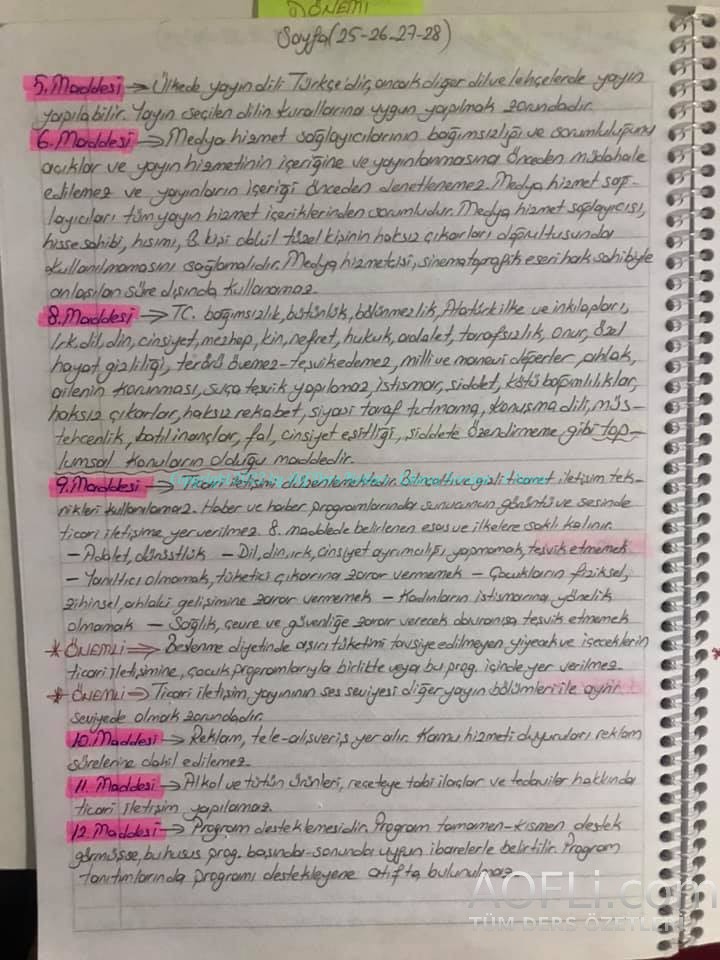 DÖNEMİ
Sayfa (25-26-27-28)
5. Maddesi → Ülkede yayın dili Türkçe'dir, ancak diğer dil ve lehçelerde yayın
yapılabilir. Yayın seçilen dilin kurallarına uygun yapılmak zorundadır.
6. Maddesi → Medya hizmet sağlayıcılarının bağımsızlığı ve sorumluluğunu
açıklar ve yayın hizmetinin içeriğine ve yayınlanmasına önceden müdahale
edilemez ve yayınların içeriği önceden denetlenemez. Medya hizmet sağ-
layıcıları tüm yayın hizmet içeriklerinden sorumludur. Medya hizmet sağlayıcısı,
hisse sahibi, hısımı, 3. kişi dahil tüzel kişinin haksız çıkarları doğrultusunda
kullanılmamasını sağlamalıdır. Medya hizmetcisi, sinematografik eseri hak sahibiyle
anlaşılan süre dışında kullanamaz.
8. Maddesi → TC. bağımsızlık, bütünlük, bölünmezlik, Atatürk ilke ve inkılapları,
ırk, dil, din, cinsiyet, mezhep, kin, nefret, hukuk, adalet, tarafsızlık, onur, özel
hayat gizliliği, terörü övemez - teşvik edemez, milli ve manevi değerler, ahlak,
ailenin korunması, suça teşvik yapılamaz, istismar, şiddet, kötü bağımlılıklar,
haksız çıkarlar, haksız rekabet, siyasi taraf tutmama, konuşma dili, müs-
tehcenlik, batıl inançlar, fal, cinsiyet eşitliği, şiddete özendirmeme gibi top-
lumsal konuların olduğu maddedir.
9. Maddesi → Ticari iletişimi düzenlemektedir. Bilinçaltı ve gizli ticaret iletişim tek-
nikleri kullanılamaz. Haber ve haber programlarında sunucunun görüntü ve sesinde
ticari iletişime yer verilmez. 8. maddede belirlenen esas ve ilkelere saklı kalınır.
- Adalet, dürüstlük - Dil, din, ırk, cinsiyet ayrımcılığı yapmamak, teşvik etmemek
- Yanıltıcı olmamak, tüketici çıkarına zarar vermemek - Çocukların fiziksel,
zihinsel, ahlaki gelişimine zarar vermemek - Kadınların istismarına yönelik
olmamak - Sağlık, çevre ve güvenliğe zarar verecek davranışa teşvik etmemek
* ÖNEMLİ ⇒ Beslenme diyetinde aşırı tüketimi tavsiye edilmeyen yiyecek ve içeceklerin
ticari iletişimine, çocuk programlarıyla birlikte veya bu prog. içinde yer verilmez.
* ÖNEMLİ → Ticari iletişim, yayınının ses seviyesi diğer yayın bölümleri ile aynı
seviyede olmak zorundadır.
10. Maddesi → Reklam, tele-alışveriş yer alır. Kamu hizmeti duyuruları reklam
sürelerine dahil edilemez.
11. Maddesi → Alkol ve tütün ürünleri, reçeteye tabi ilaçlar ve tedaviler hakkında
ticari iletişim yapılamaz.
12. Maddesi → Program desteklemesidir. Program tamamen-kısmen destek
görmüşse, bu husus prog. başında-sonunda uygun ibarelerle belirtilir. Program
tanıtımlarında programı destekleyene atıfta bulunulmaz.
AOFLi.com
TÜM DERS ÖZETLERİ